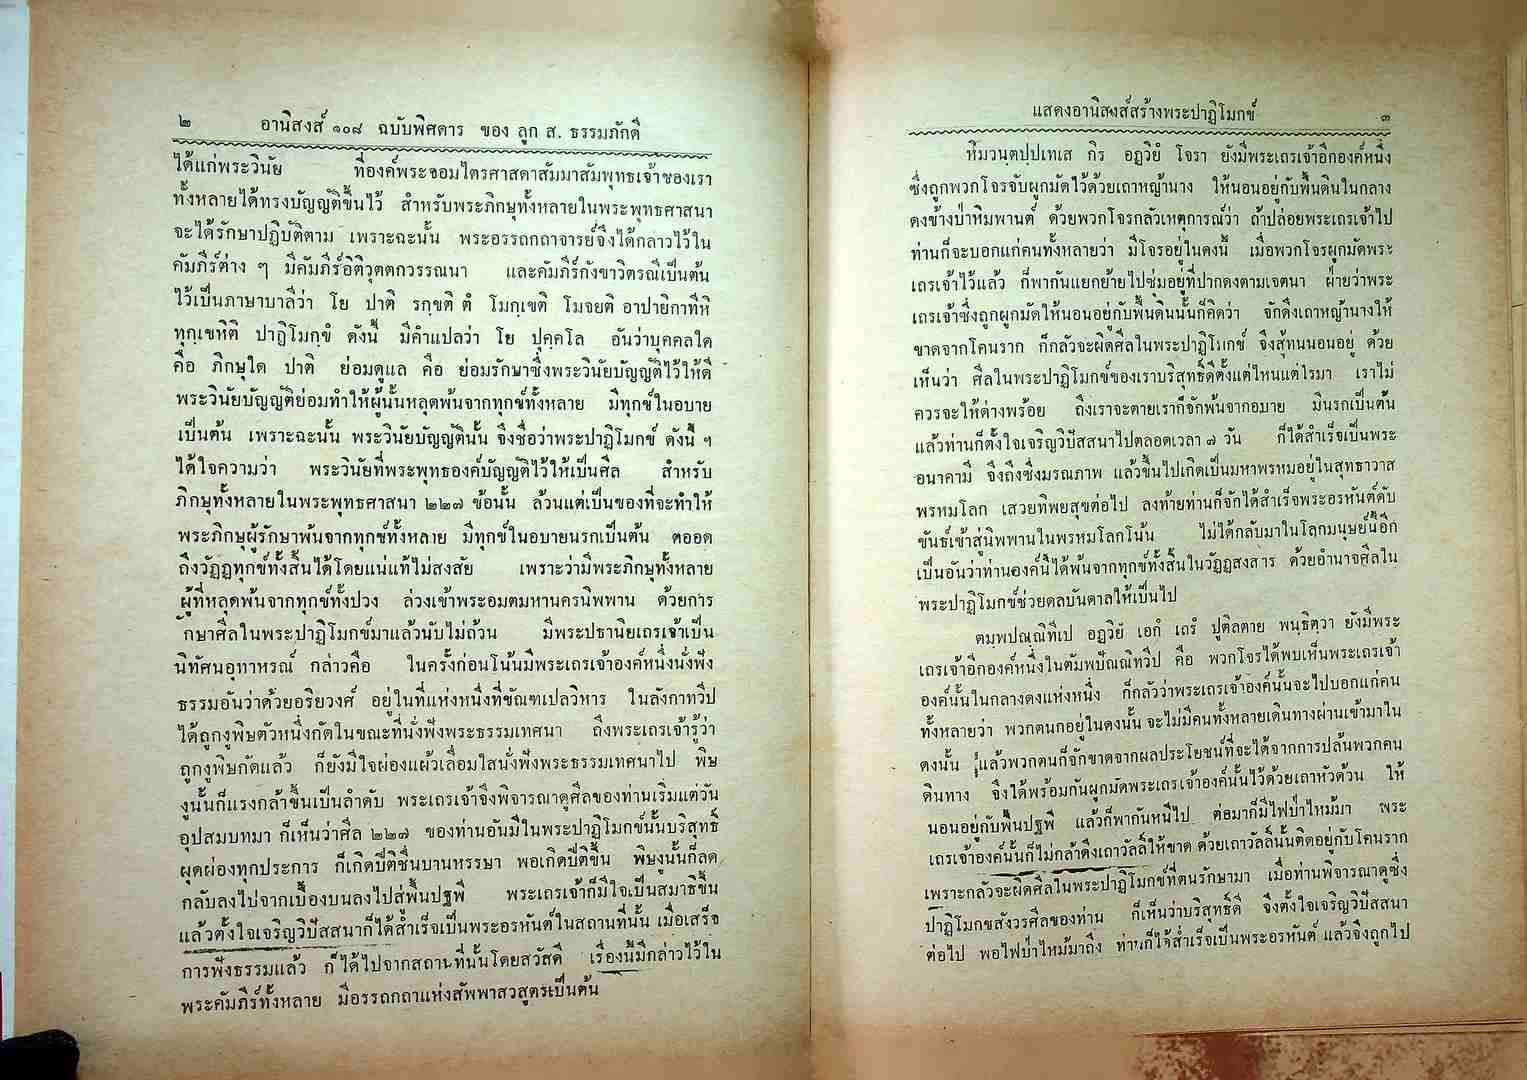 ๒ อานิสงส์ ๑๐๘ ฉบับพิศดาร ของ ลูก ส. ธรรมภักดี
ได้แก่พระวินัย ที่องค์พระจอมไตรศาสดาสัมมาสัมพุทธเจ้าของเรา
ทั้งหลายได้ทรงบัญญัติขึ้นไว้ สำหรับพระภิกษุทั้งหลายในพระพุทธศาสนา
จะได้รักษาปฏิบัติตาม เพราะฉะนั้น พระอรรถกถาจารย์จึงได้กล่าวไว้ใน
คัมภีร์ต่าง ๆ มีคัมภีร์อิติวุตตกวรรณนา และคัมภีร์กังขาวิตรณีเป็นต้น
ไว้เป็นภาษาบาลีว่า โย ปาติ รกฺขติ ตํ โมกฺเขติ โมจยติ อาปายิกาทีหิ
ทุกฺเขหีติ ปาฏิโมกฺขํ ดังนี้ มีคำแปลว่า โย ปุคฺคโล อันว่าบุคคลใด
คือ ภิกษุใด ปาติ ย่อมดูแล คือ ย่อมรักษาซึ่งพระวินัยบัญญัติไว้ให้ดี
พระวินัยบัญญัติย่อมทำให้ผู้นั้นหลุดพ้นจากทุกข์ทั้งหลาย มีทุกข์ในอบาย
เป็นต้น เพราะฉะนั้น พระวินัยบัญญัตินั้น จึงชื่อว่าพระปาฏิโมกข์ ดังนี้ ฯ
ได้ใจความว่า พระวินัยที่พระพุทธองค์บัญญัติไว้ให้เป็นศีล สำหรับ
ภิกษุทั้งหลายในพระพุทธศาสนา ๒๒๗ ข้อนั้น ล้วนแต่เป็นของที่จะทำให้
พระภิกษุผู้รักษาพ้นจากทุกข์ทั้งหลาย มีทุกข์ในอบายนรกเป็นต้น ตลอด
ถึงวัฏฏทุกข์ทั้งสิ้นได้โดยแน่แท้ไม่สงสัย เพราะว่ามีพระภิกษุทั้งหลาย
ผู้ที่หลุดพ้นจากทุกข์ทั้งปวง ล่วงเข้าพระอมตมหานครนิพพาน ด้วยการ
ักษาศีลในพระปาฏิโมกข์มาแล้วนับไม่ถ้วน มีพระปธานิยเถรเจ้าเป็น
นิทัศนอุทาหรณ์ กล่าวคือ ในครั้งก่อนโน้นมีพระเถรเจ้าองค์หนึ่งนั่งฟัง
ธรรมอันว่าด้วยอริยวงศ์ อยู่ในที่แห่งหนึ่งที่ขัณฑเปลวิหาร ในลังกาทวีป
ได้ถูกงูพิษตัวหนึ่งกัดในขณะที่นั่งฟังพระธรรมเทศนา ถึงพระเถรเจ้ารู้ว่า
ถูกงูพิษกัดแล้ว ก็ยังมีใจผ่องแผ้วเลื่อมใสนั่งฟังพระธรรมเทศนาไป พิษ
งูนั้นก็แรงกล้าขึ้นเป็นลำดับ พระเถรเจ้าจึงพิจารณาดูศีลของท่านเริ่มแต่วัน
อุปสมบทมา ก็เห็นว่าศีล ๒๒๗ ของท่านอันมีในพระปาฏิโมกข์นั้นบริสุทธิ์
ผุดผ่องทุกประการ ก็เกิดปีติชื่นบานหรรษา พอเกิดปีติขึ้น พิษงูนั้นก็ลด
กลับลงไปจากเบื้องบนลงไปสู่พื้นปฐพี พระเถรเจ้าก็มีใจเป็นสมาธิขึ้น
แล้วตั้งใจเจริญวิปัสสนาก็ได้สำเร็จเป็นพระอรหันต์ในสถานที่นั้น เมื่อเสร็จ
การฟังธรรมแล้ว ก็ได้ไปจากสถานที่นั้นโดยสวัสดี เรื่องนี้มีกล่าวไว้ใน
พระคัมภีร์ทั้งหลาย มีอรรถกถาแห่งสัพพาสวสูตรเป็นต้น
แสดงอานิสงส์สร้างพระปาฏิโมกข์ ๓
หิมวนฺตปฺปเทเส กิร อฏวิยํ โจรา ยังมีพระเถรเจ้าอีกองค์หนึ่ง
ซึ่งถูกพวกโจรจับผูกมัดไว้ด้วยเถาหญ้านาง ให้นอนอยู่กับพื้นดินในกลาง
ดงข้างป่าหิมพานต์ ด้วยพวกโจรกลัวเหตุการณ์ว่า ถ้าปล่อยพระเถรเจ้าไป
ท่านก็จะบอกแก่คนทั้งหลายว่า มีโจรอยู่ในดงนี้ เมื่อพวกโจรผูกมัดพระ
เถรเจ้าไว้แล้ว ก็พากันแยกย้ายไปซุ่มอยู่ที่ปากดงตามเจตนา ฝ่ายว่าพระ
เถรเจ้าซึ่งถูกผูกมัดให้นอนอยู่กับพื้นดินนั้นก็คิดว่า จักดึงเถาหญ้านางให้
ขาดจากโคนราก ก็กลัวจะผิดศีลในพระปาฏิโมกข์ จึงสู้ทนนอนอยู่ ด้วย
เห็นว่า ศีลในพระปาฏิโมกข์ของเราบริสุทธิ์ดีตั้งแต่ไหนแต่ไรมา เราไม่
ควรจะให้ด่างพร้อย ถึงเราจะตายเราก็จักพ้นจากอบาย มีนรกเป็นต้น
แล้วท่านก็ตั้งใจเจริญวิปัสสนาไปตลอดเวลา ๗ วัน ก็ได้สำเร็จเป็นพระ
อนาคามี จึงถึงซึ่งมรณภาพ แล้วขึ้นไปเกิดเป็นมหาพรหมอยู่ในสุทธาวาส
พรหมโลก เสวยทิพยสุขต่อไป ลงท้ายท่านก็จักได้สำเร็จพระอรหันต์ดับ
ขันธ์เข้าสู่นิพพานในพรหมโลกโน้น ไม่ได้กลับมาในโลกมนุษย์นี้อีก
เป็นอันว่าท่านองค์นี้ได้พ้นจากทุกข์ทั้งสิ้นในวัฏฏสงสาร ด้วยอำนาจศีลใน
พระปาฏิโมกข์ช่วยดลบันดาลให้เป็นไป
ตมฺพปณฺณิทีเป อฏวิยํ เอกํ เถรํ ปูติลตาย พนฺธิตฺวา ยังมีพระ
เถรเจ้าอีกองค์หนึ่งในตัมพปัณณิทวีป คือ พวกโจรได้พบเห็นพระเถรเจ้า
องค์นั้นในกลางดงแห่งหนึ่ง ก็กลัวว่าพระเถรเจ้าองค์นั้นจะไปบอกแก่คน
ทั้งหลายว่า พวกตนกอยู่ในดงนั้น จะไม่มีคนทั้งหลายเดินทางผ่านเข้ามาใน
ดงนั้น แล้วพวกตนก็จักขาดจากผลประโยชน์ที่จะได้จากการปล้นพวกคน
เดินทาง จึงได้พร้อมกันผูกมัดพระเถรเจ้าองค์นั้นไว้ด้วยเถาหัวด้วน ให้
นอนอยู่กับพื้นปฐพี แล้วก็พากันหนีไป ต่อมาก็มีไฟป่าไหม้มา พระ
เถรเจ้าองค์นั้นก็ไม่กล้าดึงเถาวัลลิ์ให้ขาด ด้วยเถาวัลลิ์นั้นติดอยู่กับโคนราก
เพราะกลัวจะผิดศีลในพระปาฏิโมกข์ที่ตนรักษามา เมื่อท่านพิจารณาดูซึ่ง
ปาฏิโมกขสังวรศีลของท่าน ก็เห็นว่าบริสุทธิ์ดี จึงตั้งใจเจริญวิปัสสนา
ต่อไป พอไฟป่าไหม้มาถึง ท่านก็ได้สำเร็จเป็นพระอรหันต์ แล้วจึงถูกไป